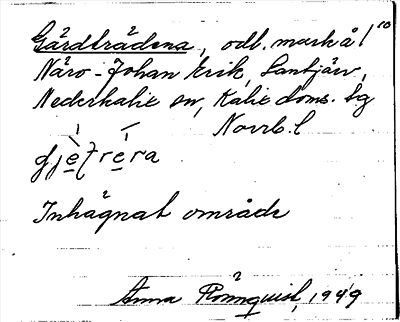 Gärdträdena, odl. mark å 1 10
Näro-Johan Erik, Lantjärv,
Nederkalix sn, Kalix doms. lg
Norrb. l
Inhägnat område
Anna Rönnquist, 1949